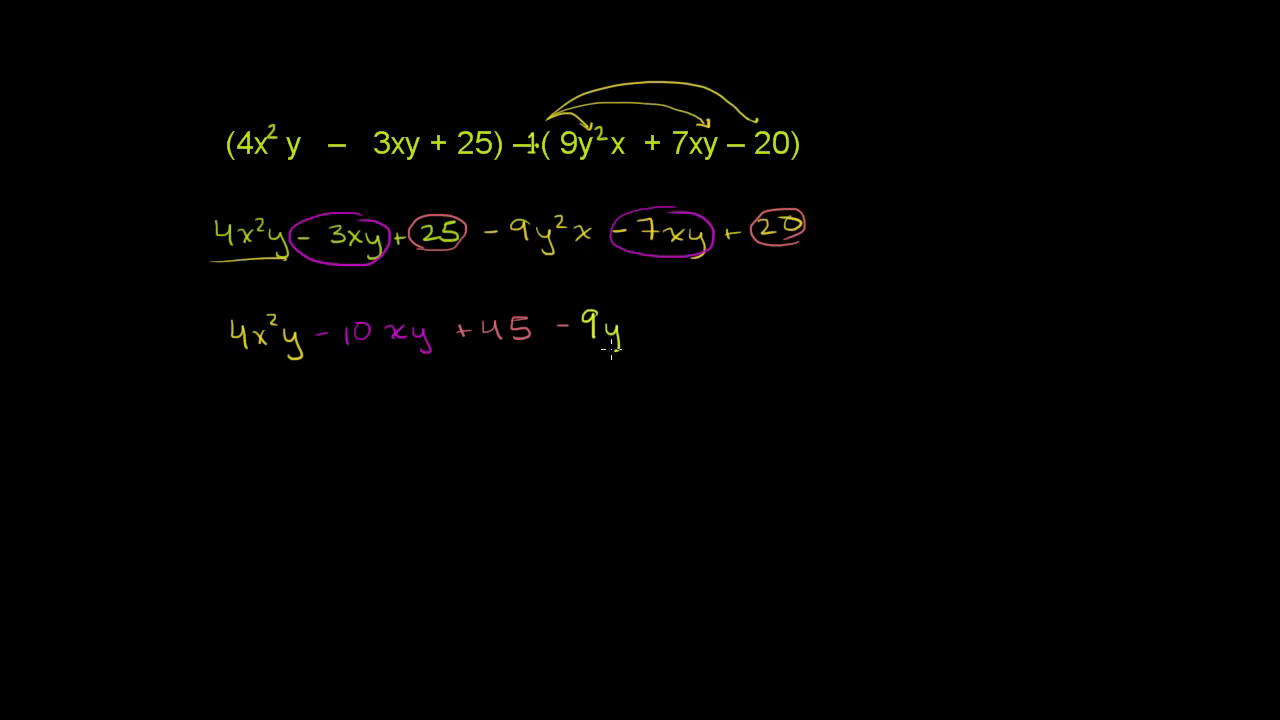 (4x² y – 3xy + 25) –1( 9y²x + 7xy – 20)
4x²y - 3xy + 25 - 9y²x - 7xy + 20
4x²y - 10xy + 45 - 9y